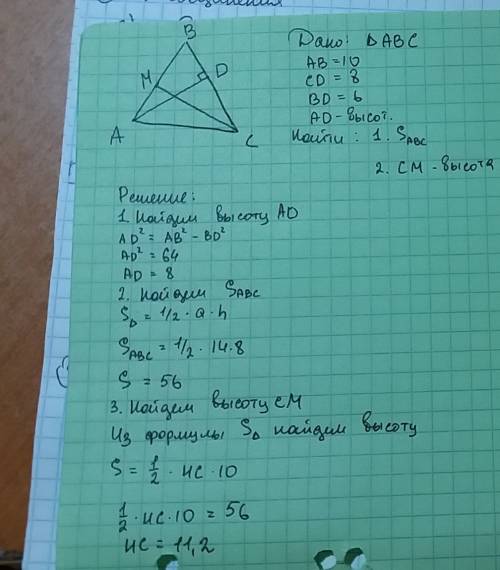 B
M
D
A
C
Дано: ΔABC
AB = 10
CD = 8
BD = 6
AD - высот.
Найти: 1. S_ABC
2. CM - высота
Решение:
1. Найдем высоту AD
AD² = AB² - BD²
AD² = 64
AD = 8
2. Найдем S_ABC
S_Δ = 1/2 · a · h
S_ABC = 1/2 · 14 · 8
S = 56
3. Найдем высоту CM
Из формулы S_Δ найдем высоту
S = 1/2 · МС · 10
1/2 · МС · 10 = 56
МС = 11,2